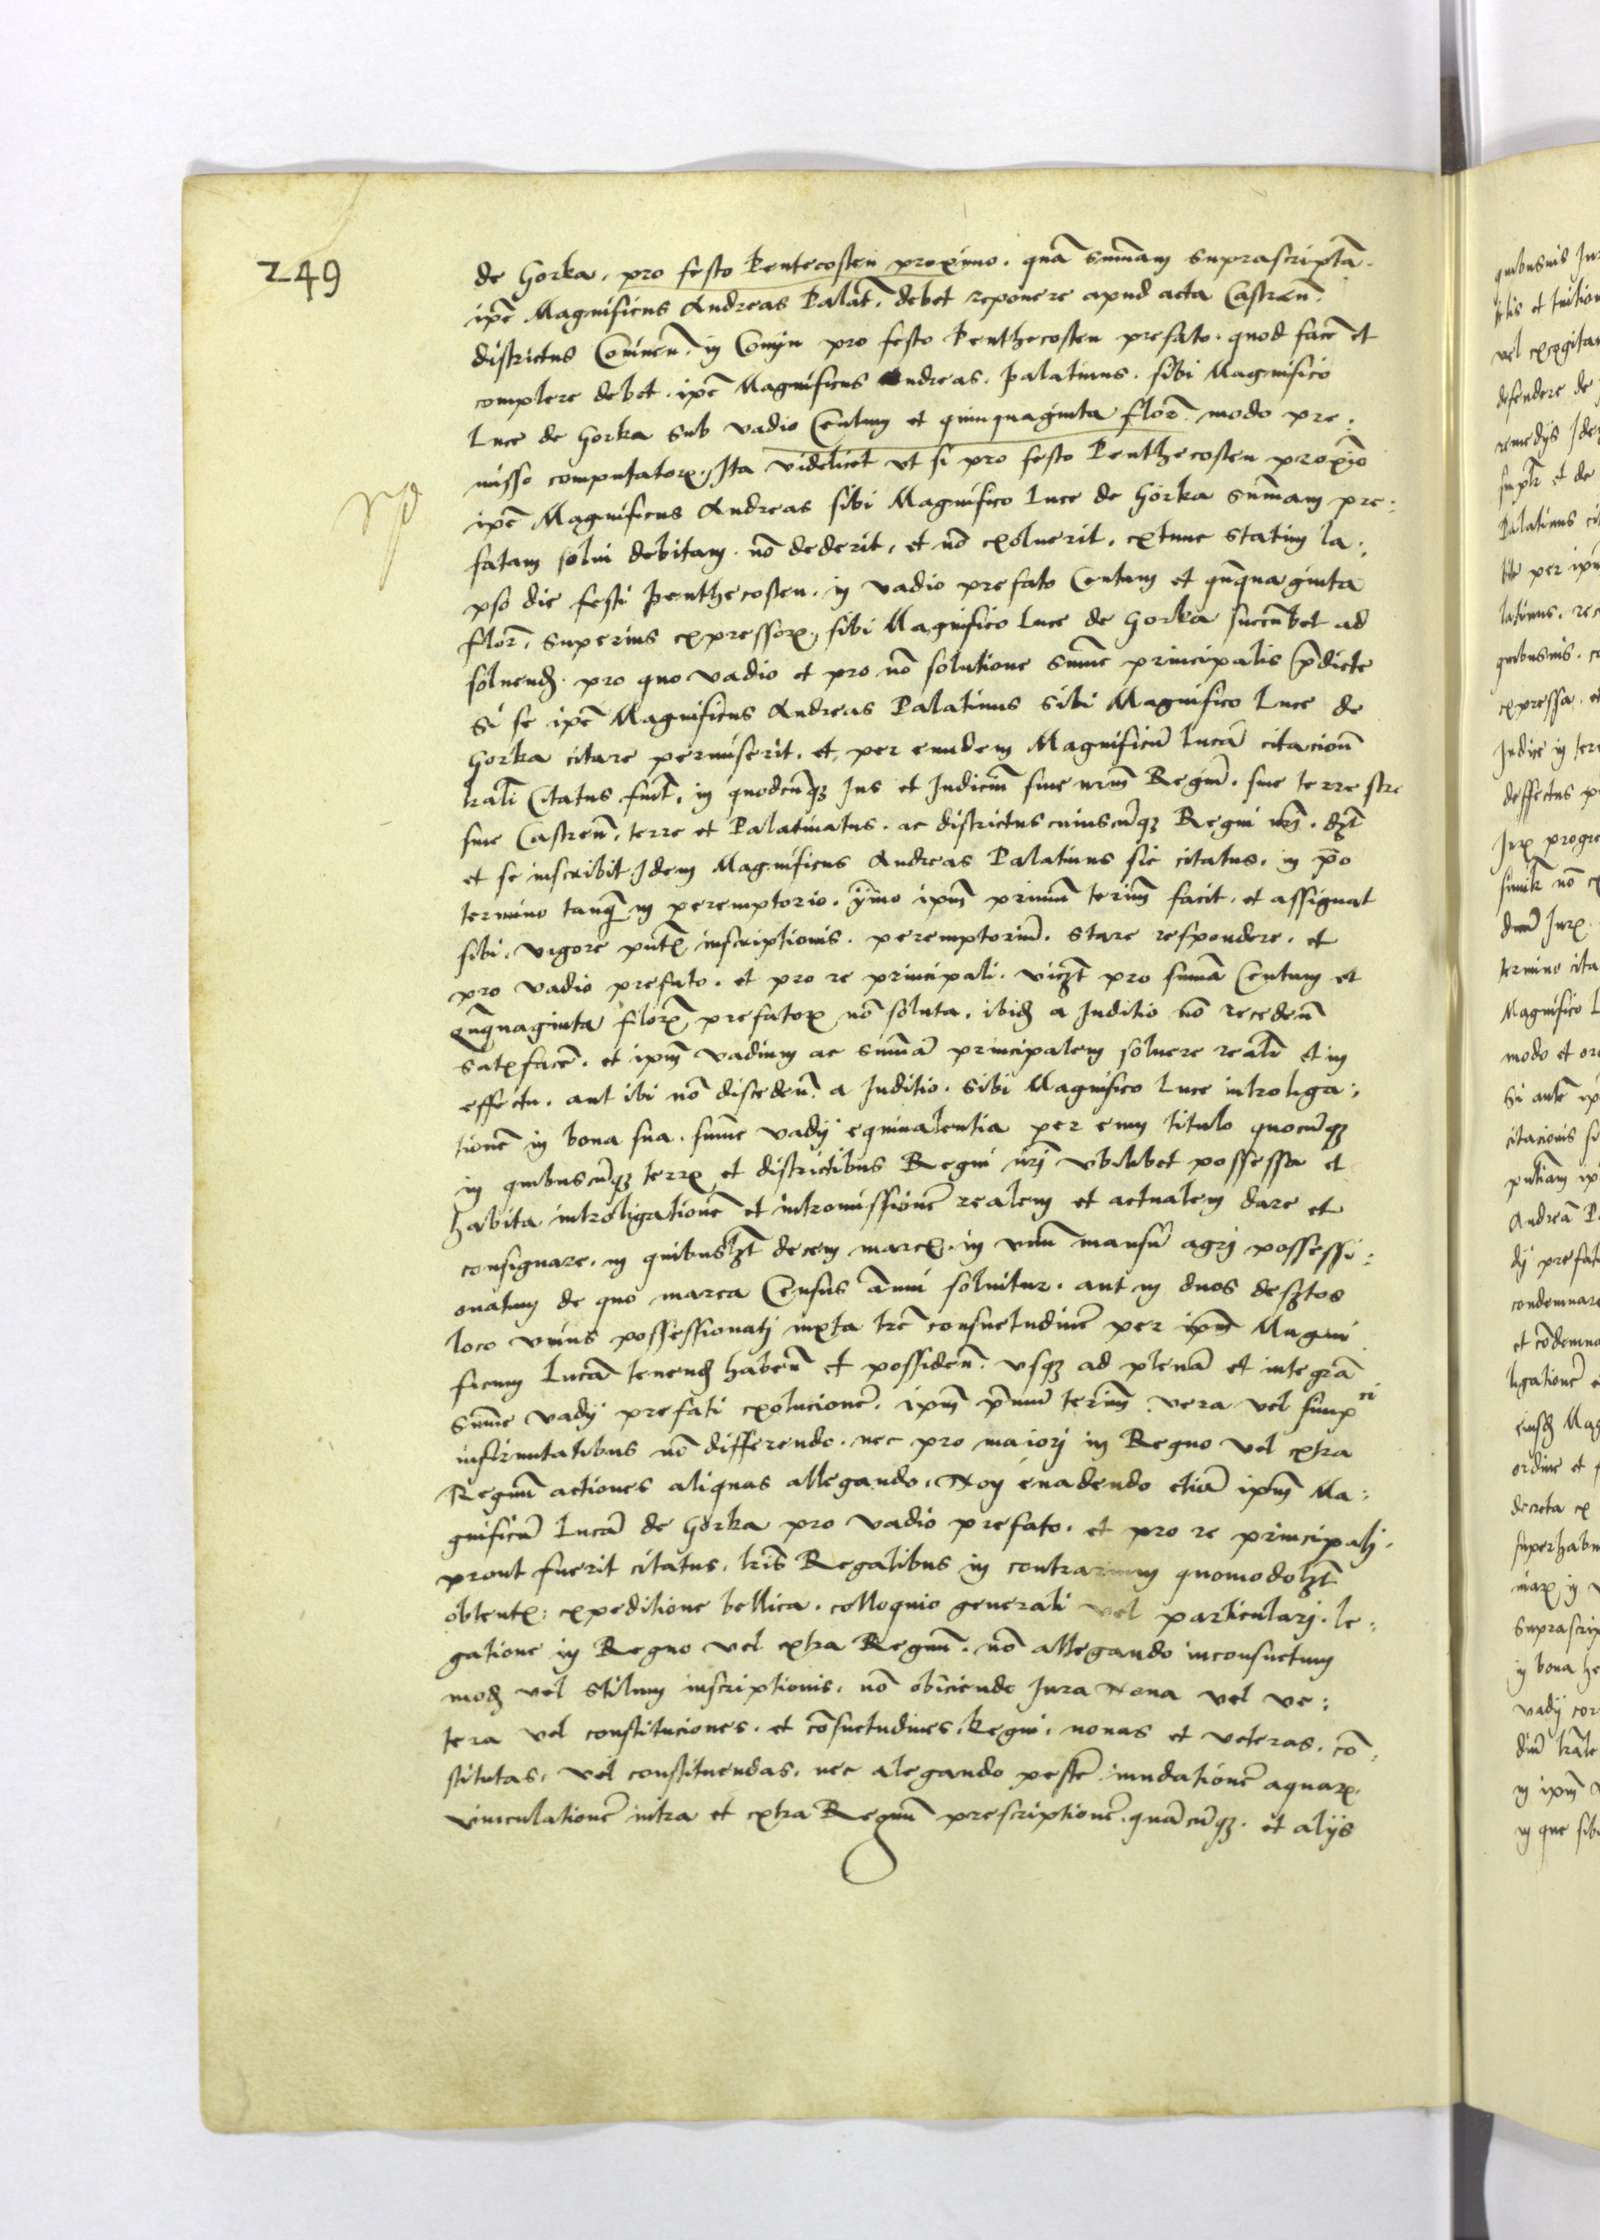 249
de Gorka, pro festo Pentecosten proximo. quā sum̄am suprascriptā.
ipē Magnificus Andreas Palat̄. debet reponere apud acta Castren̄.
districtus Coninen̄. in Conijn pro festo Penthecosten prefato. quod facē et
complere debet. ipē Magnificus Andreas. palatinus. sibi Magnifico
Luce de Gorka sub vadio Centum et quinquaginta florͦ. modo pre:
misso computatorꝝ. Ita videlicet ut si pro festo Penthecosten proxīo
ipē Magnificus Andreas sibi Magnifico Luce de Gorka sum̄am pre:
fatam solui debitam. nō dederit, et nō exoluerit. extunc statim la:
pso die festi penthecosten. in vadio prefato Centum et qn̄quaginta
florͦ. superius expressorꝝ, sibi Magnifico Luce de Gorka succūbet ad
soluenđ. pro quo vadio et pro nō solutione sum̄e principalis p̄dicte
Si se ipē Magnificus Andreas Palatinus sibi Magnifico Luce de
Gorka citare permiserit. et per eundem Magnificū Lucā citacioni
trali Citatus fuit, in quodcūqꝫ Ius et Iudiciū siue nr̄m Regiū. siue terrestre
siue Castren̄. terre et Palatinatus. ac districtus cuiuscūqꝫ Regni nr̄j. dꝫt
et se inscribit Idem Magnificus Andreas Palatinus sic citatus. in p̄o
termino tanꝗ in peremptorio. ymo ipm̄ primū terim̄ facit. et assignat
sibi. vigore pn̄tꝭ inscriptionis. peremptoriū. stare respondere. et
pro vadio prefato. et pro re principali. vicꝫt pro sum̄a Centum et
qn̄quaginta florꝭ prefatorꝝ nō soluta. ibiđ a Iuditio nō recedeñ
satꝭfacē. et ipm̄ vadium ac sum̄ā principalem soluere realr̄ et in
effectu. aut ibi nō disceden̄. a Iuditio. sibi Magnifico Luce introliga:
tionē in bona sua. sum̄e vadij equiualentia per eum titulo quocūqꝫ
in quibuscūqꝫ terrꝭ et districtibus Regni nr̄j vbilibet possessa et
habita introligationē et intromissionē realem et actualem dare et
consignare. in quibusꝫt decem marcꝭ. in vnū mansū agrj possessi:
onatum de quo marca Census annui soluitur. aut in duos desꝫtos
loco vnius possessionatj iuxta trē consuetudinē per ipm̄ Magni
ficum Lucā tenenđ haben̄ et possiden̄. vsqꝫ ad plenā et integrā
sum̄e vadij prefati exolucionē. ipm̄ p̄mū terim̄ vera vel simpͨⁱ
infirmitatibus nō differendo. nec pro maiorj in Regno vel extra
Regnū actiones aliquas allegando. Non euadendo etiā ipm̄ Ma:
gnificū Lucā de Gorka pro vadio prefato. et pro re principalj.
prout fuerit citatus. tris Regalibus in contrarium quomodolꝫt
obtentꝭ: expeditione bellica. colloquio generali vel particularj. le:
gatione in Regno vel extra Regnū. nō allegando inconsuetum
modđ vel stilum inscriptionis. nō obiciendo Iura Noua vel ve:
tera vel constituciones. et cōsuetudines. Regni. nouas et veteras. cō:
stitutas. vel constituendas. nec alegando pestē inundationē aquarꝝ.
vinculationē intra et extra Regnū prescriptionē. quācūqꝫ. et alijs